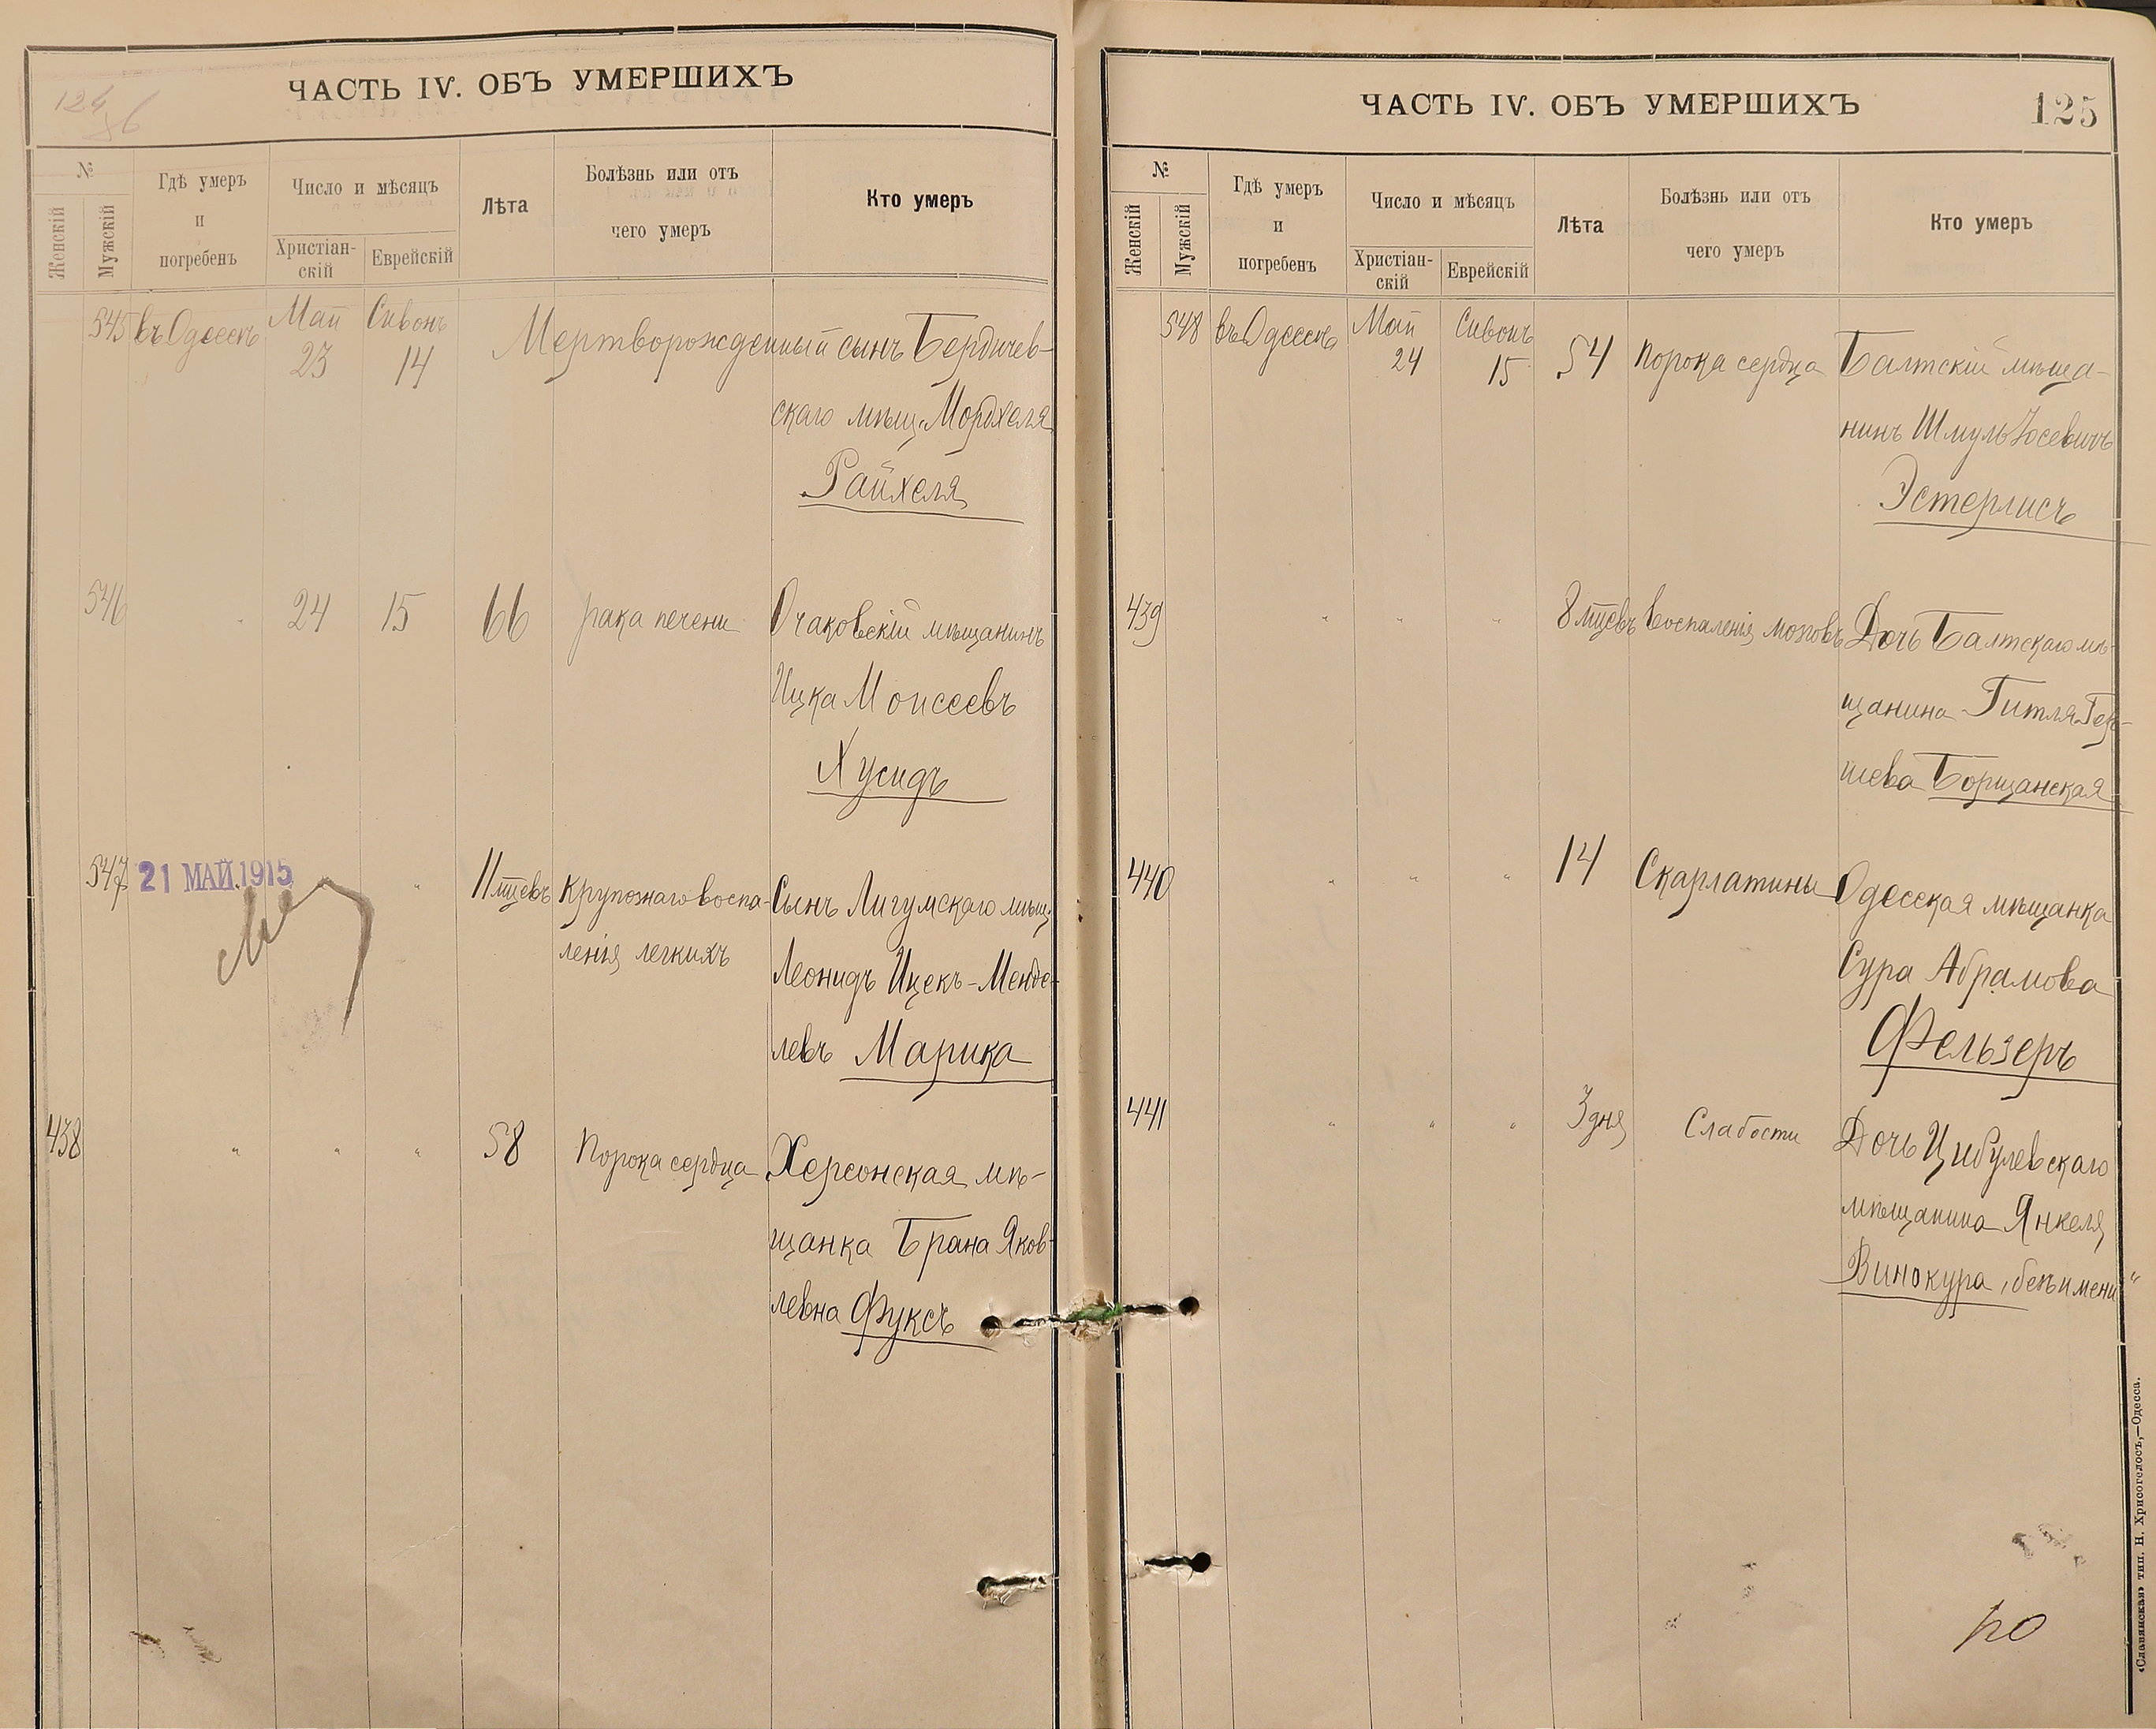 ЧАСТЬ IV. ОБЪ УМЕРШИХЪ
№
Женскій
Мужскій
Гдѣ умеръ
и
погребенъ
Число и мѣсяцъ
Христіан-
скій
Еврейскій
Лѣта
Болѣзнь или отъ
чего умеръ
Кто умеръ
545 въ Одессѣ Май 23 Сивонъ 14 Мертворожденный сынъ Бердичев-
скаго мѣщ. Мордхеля
Райхеля
546 " 24 15 66 рака печени Очаковскій мѣщанинъ
Ицка Моисеевъ
Хусидъ
547 21 МАЙ 1915 " 11 мѣцевъ Крупознаго воспа- Сынъ Лигумскаго мѣщ.
ленія легкихъ Леонидъ Ицекъ-Менде-
левъ Марика
438 " " " 58 Порока сердца Херсонская мѣ-
щанка Брана Яков-
левна Фуксъ
ЧАСТЬ IV. ОБЪ УМЕРШИХЪ
125
№
Женскій
Мужскій
Гдѣ умеръ
и
погребенъ
Число и мѣсяцъ
Христіан-
скій
Еврейскій
Лѣта
Болѣзнь или отъ
чего умеръ
Кто умеръ
548 въ Одессѣ Май 24 Сивонъ 15 54 порока сердца Балтскій мѣща-
нинъ Шмуль Іосевичъ
Эстерлисъ
439 " " " 8 мѣцевъ Воспаленія мозговъ Дочь Балтскаго мѣ-
щанина Гитля Гер-
шева Борщанская
440 " " " 14 Скарлатины Одесская мѣщанка
Сура Абрамова
Фельзеръ
441 " " " 3 дня Слабости Дочь Цибулевскаго
мѣщанина Янкеля
Винокура, "безъ имени"
«Славянская» тип. Н. Хрисогелосъ,—Одесса.